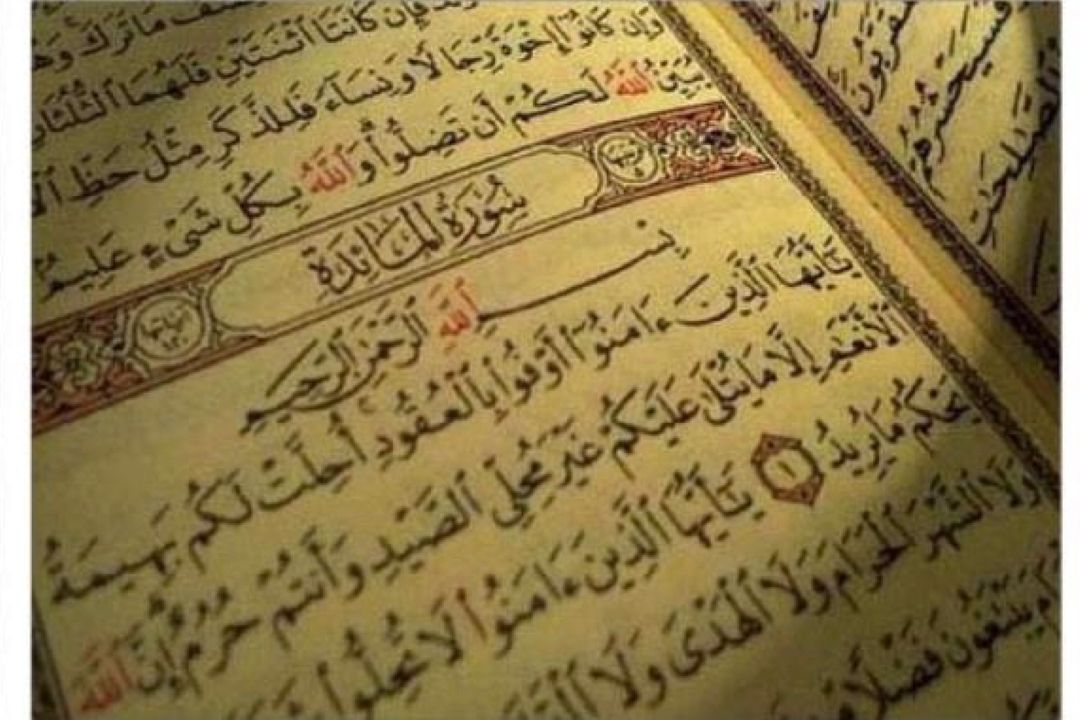 مَا تَرَكَ وَهُوَ
فَإِن كَانَتَا ٱثْنَتَيْنِ فَلَهُمَا ٱلثُّلُثَانِ
وَإِن كَانُوٓا۟ إِخْوَةً رِّجَالًا وَنِسَآءً فَلِلذَّكَرِ مِثْلُ حَظِّ
يُبَيِّنُ ٱللَّهُ لَكُمْ أَن تَضِلُّوا۟ وَٱللَّهُ بِكُلِّ شَىْءٍ عَلِيمٌۢ
سُورَةُ المَائِدَةِ
بِسْمِ ٱللَّهِ ٱلرَّحْمَٰنِ ٱلرَّحِيمِ
يَٰٓأَيُّهَا ٱلَّذِينَ ءَامَنُوٓا۟ أَوْفُوا۟ بِٱلْعُقُودِ أُحِلَّتْ لَكُم بَهِيمَةُ
ٱلْأَنْعَٰمِ إِلَّا مَا يُتْلَىٰ عَلَيْكُمْ غَيْرَ مُحِلِّى ٱلصَّيْدِ وَأَنتُمْ حُرُمٌ إِنَّ ٱللَّهَ
يَحْكُمُ مَا يُرِيدُ ١ يَٰٓأَيُّهَا ٱلَّذِينَ ءَامَنُوا۟ لَا تُحِلُّوا۟
وَلَا ٱلشَّهْرَ ٱلْحَرَامَ وَلَا ٱلْهَدْىَ وَلَا
يَبْتَغُونَ فَضْلًا